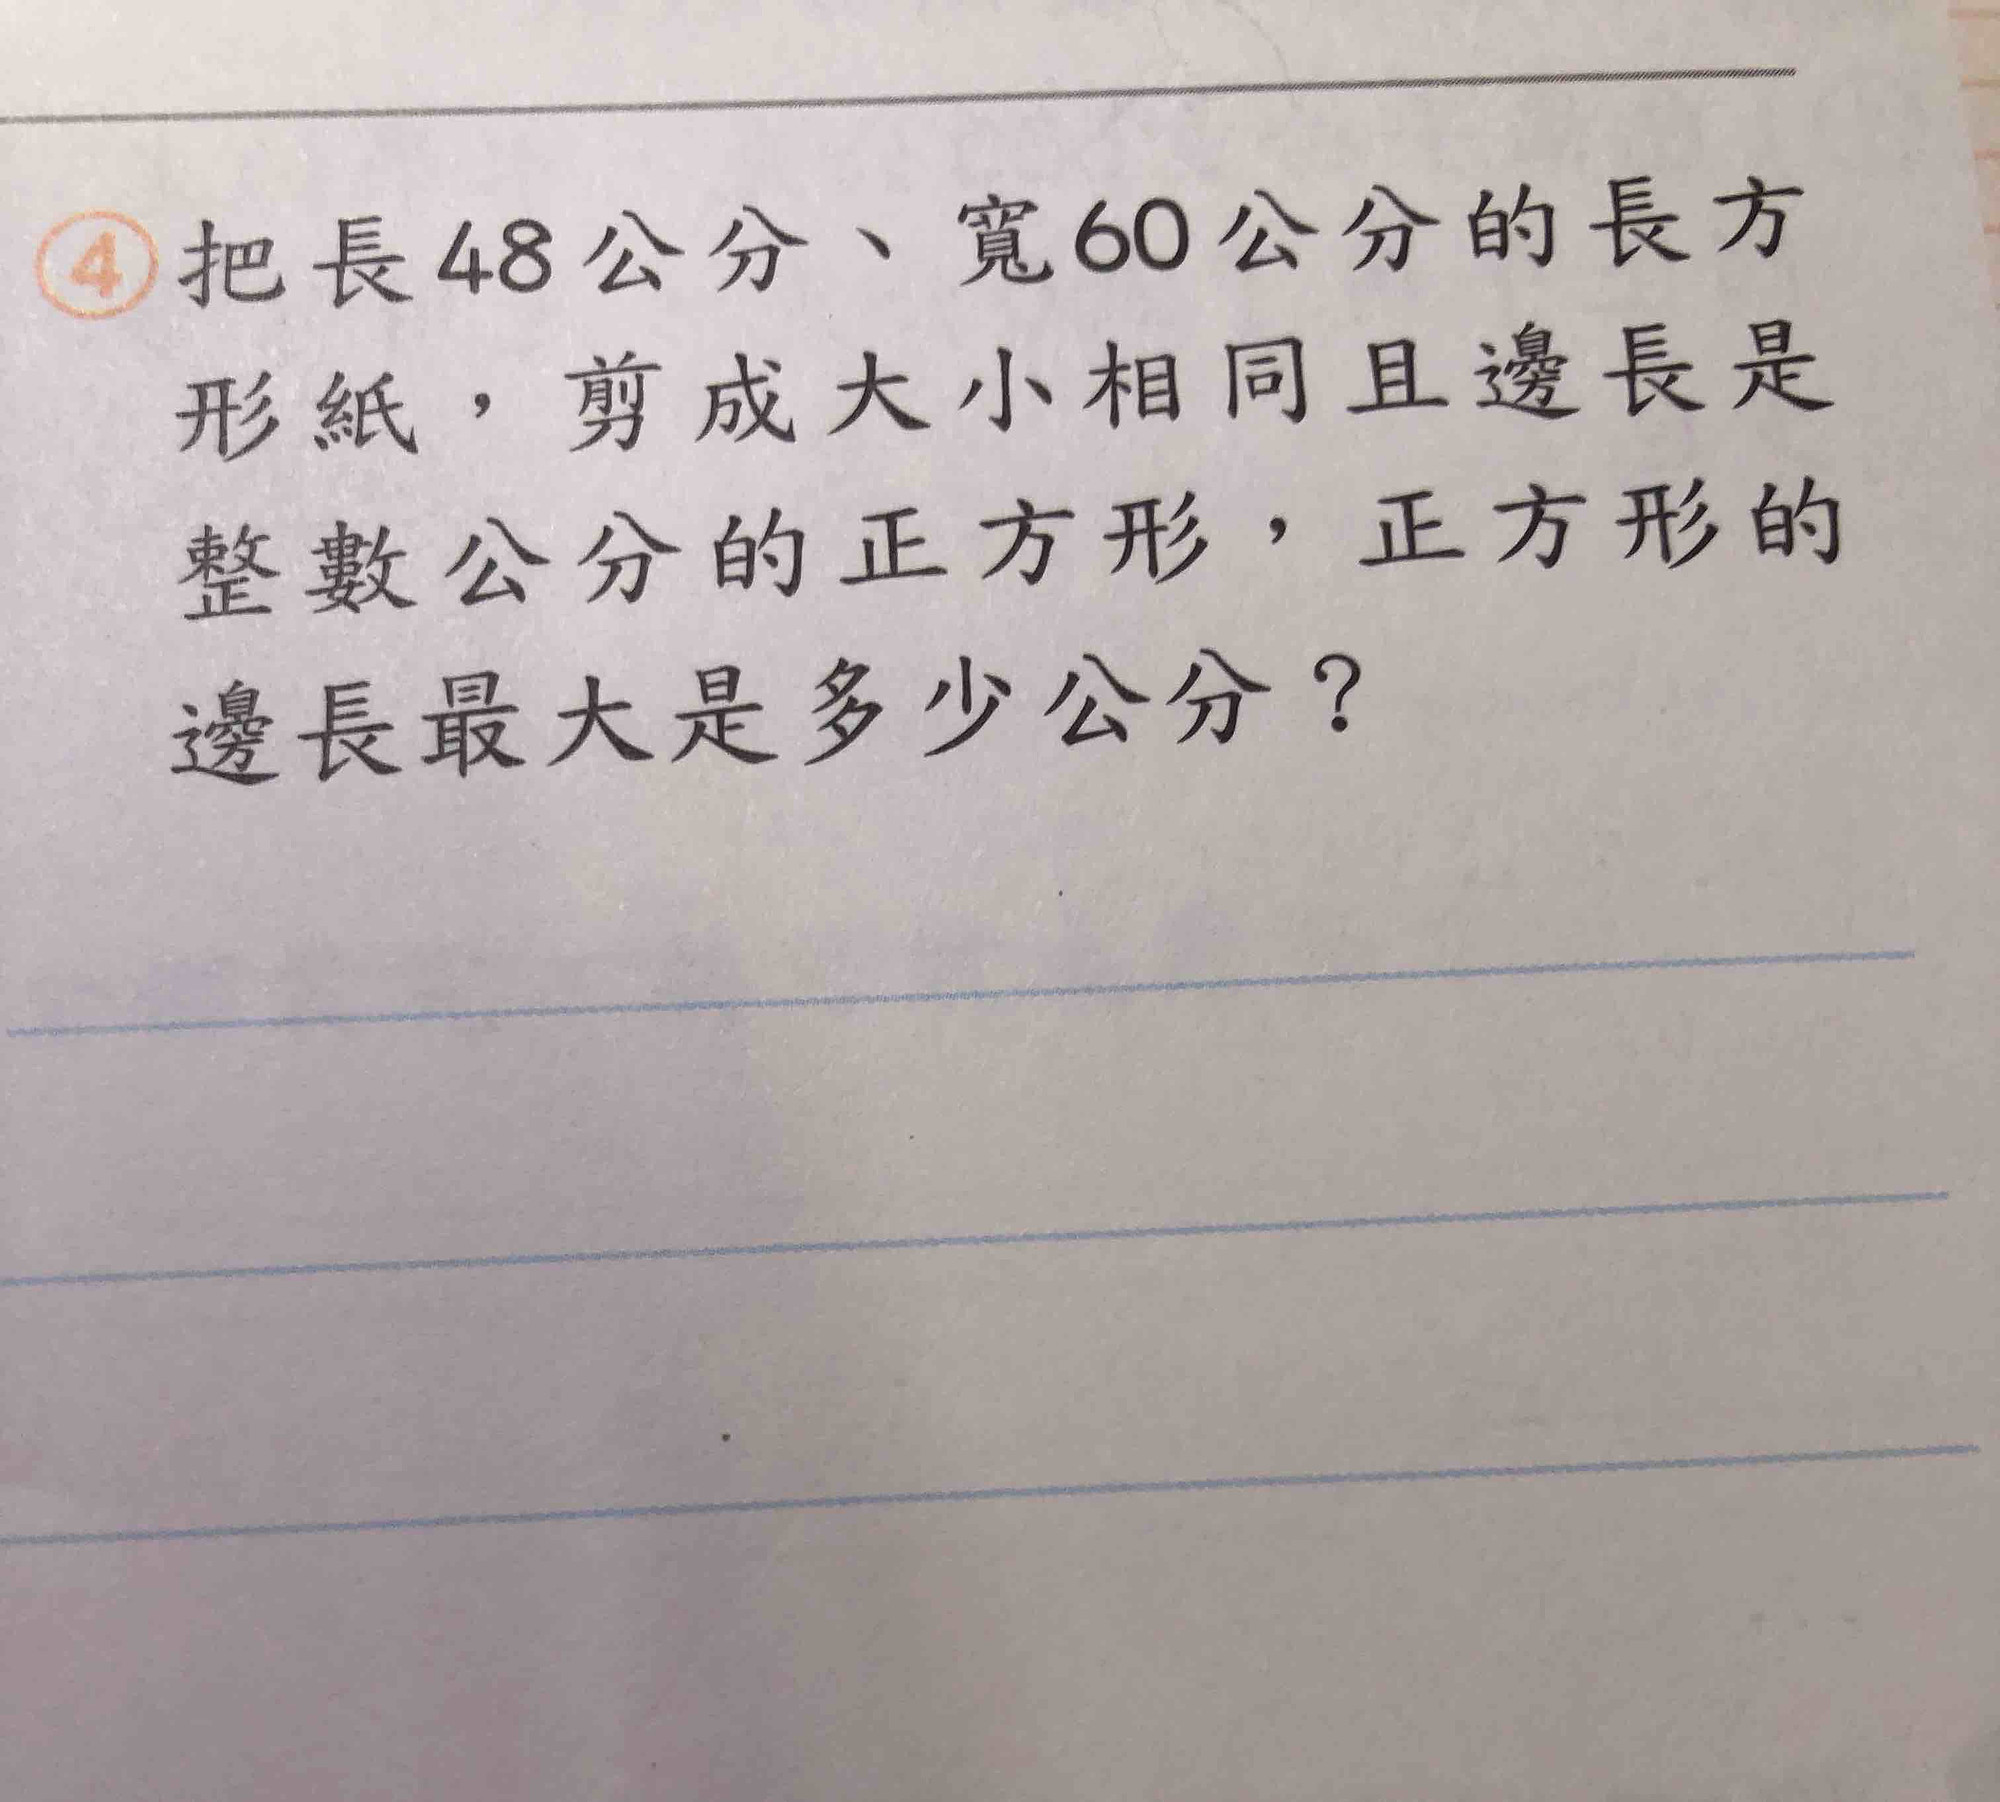 ④把長48公分、寬60公分的長方
形紙，剪成大小相同且邊長是
整數公分的正方形，正方形的
邊長最大是多少公分？